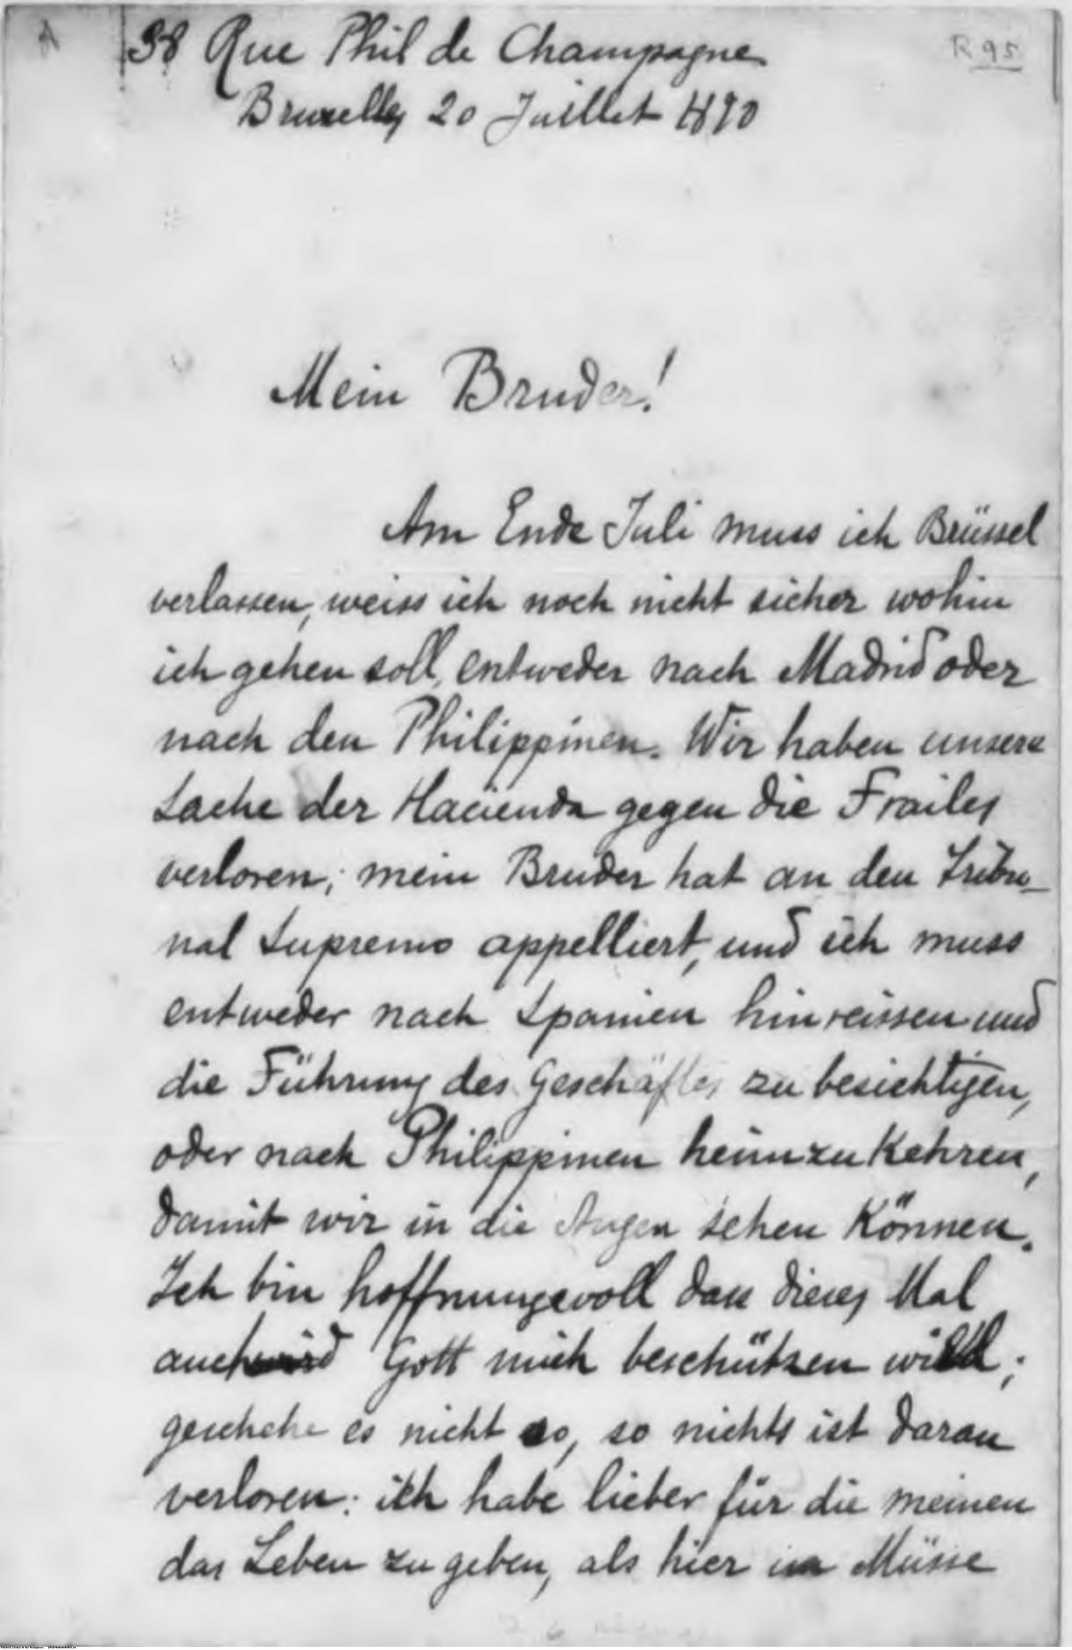 R 95
38 Rue Phil de Champagne
Bruxelles 20 Juillet 1890
Mein Bruder!
Am Ende Juli muss ich Brüssel
verlassen, weiss ich noch nicht sicher wohin
ich gehen soll, entweder nach Madrid oder
nach den Philippinen. Wir haben unsere
Sache der Hacienda gegen die Frailes
verloren; mein Bruder hat an den Tribu-
nal Supremo appelliert, und ich muss
entweder nach Spanien hinreissen und
die Führung des Geschäftes zu besichtigen,
oder nach Philippinen heimzukehren,
damit wir in die Augen sehen können.
Ich bin hoffnungsvoll dass dieses Mal
auch wird Gott mich beschützen will;
geschehe es nicht so, so nichts ist daran
verloren: ich habe lieber für die meinen
das Leben zu geben, als hier in Müsse